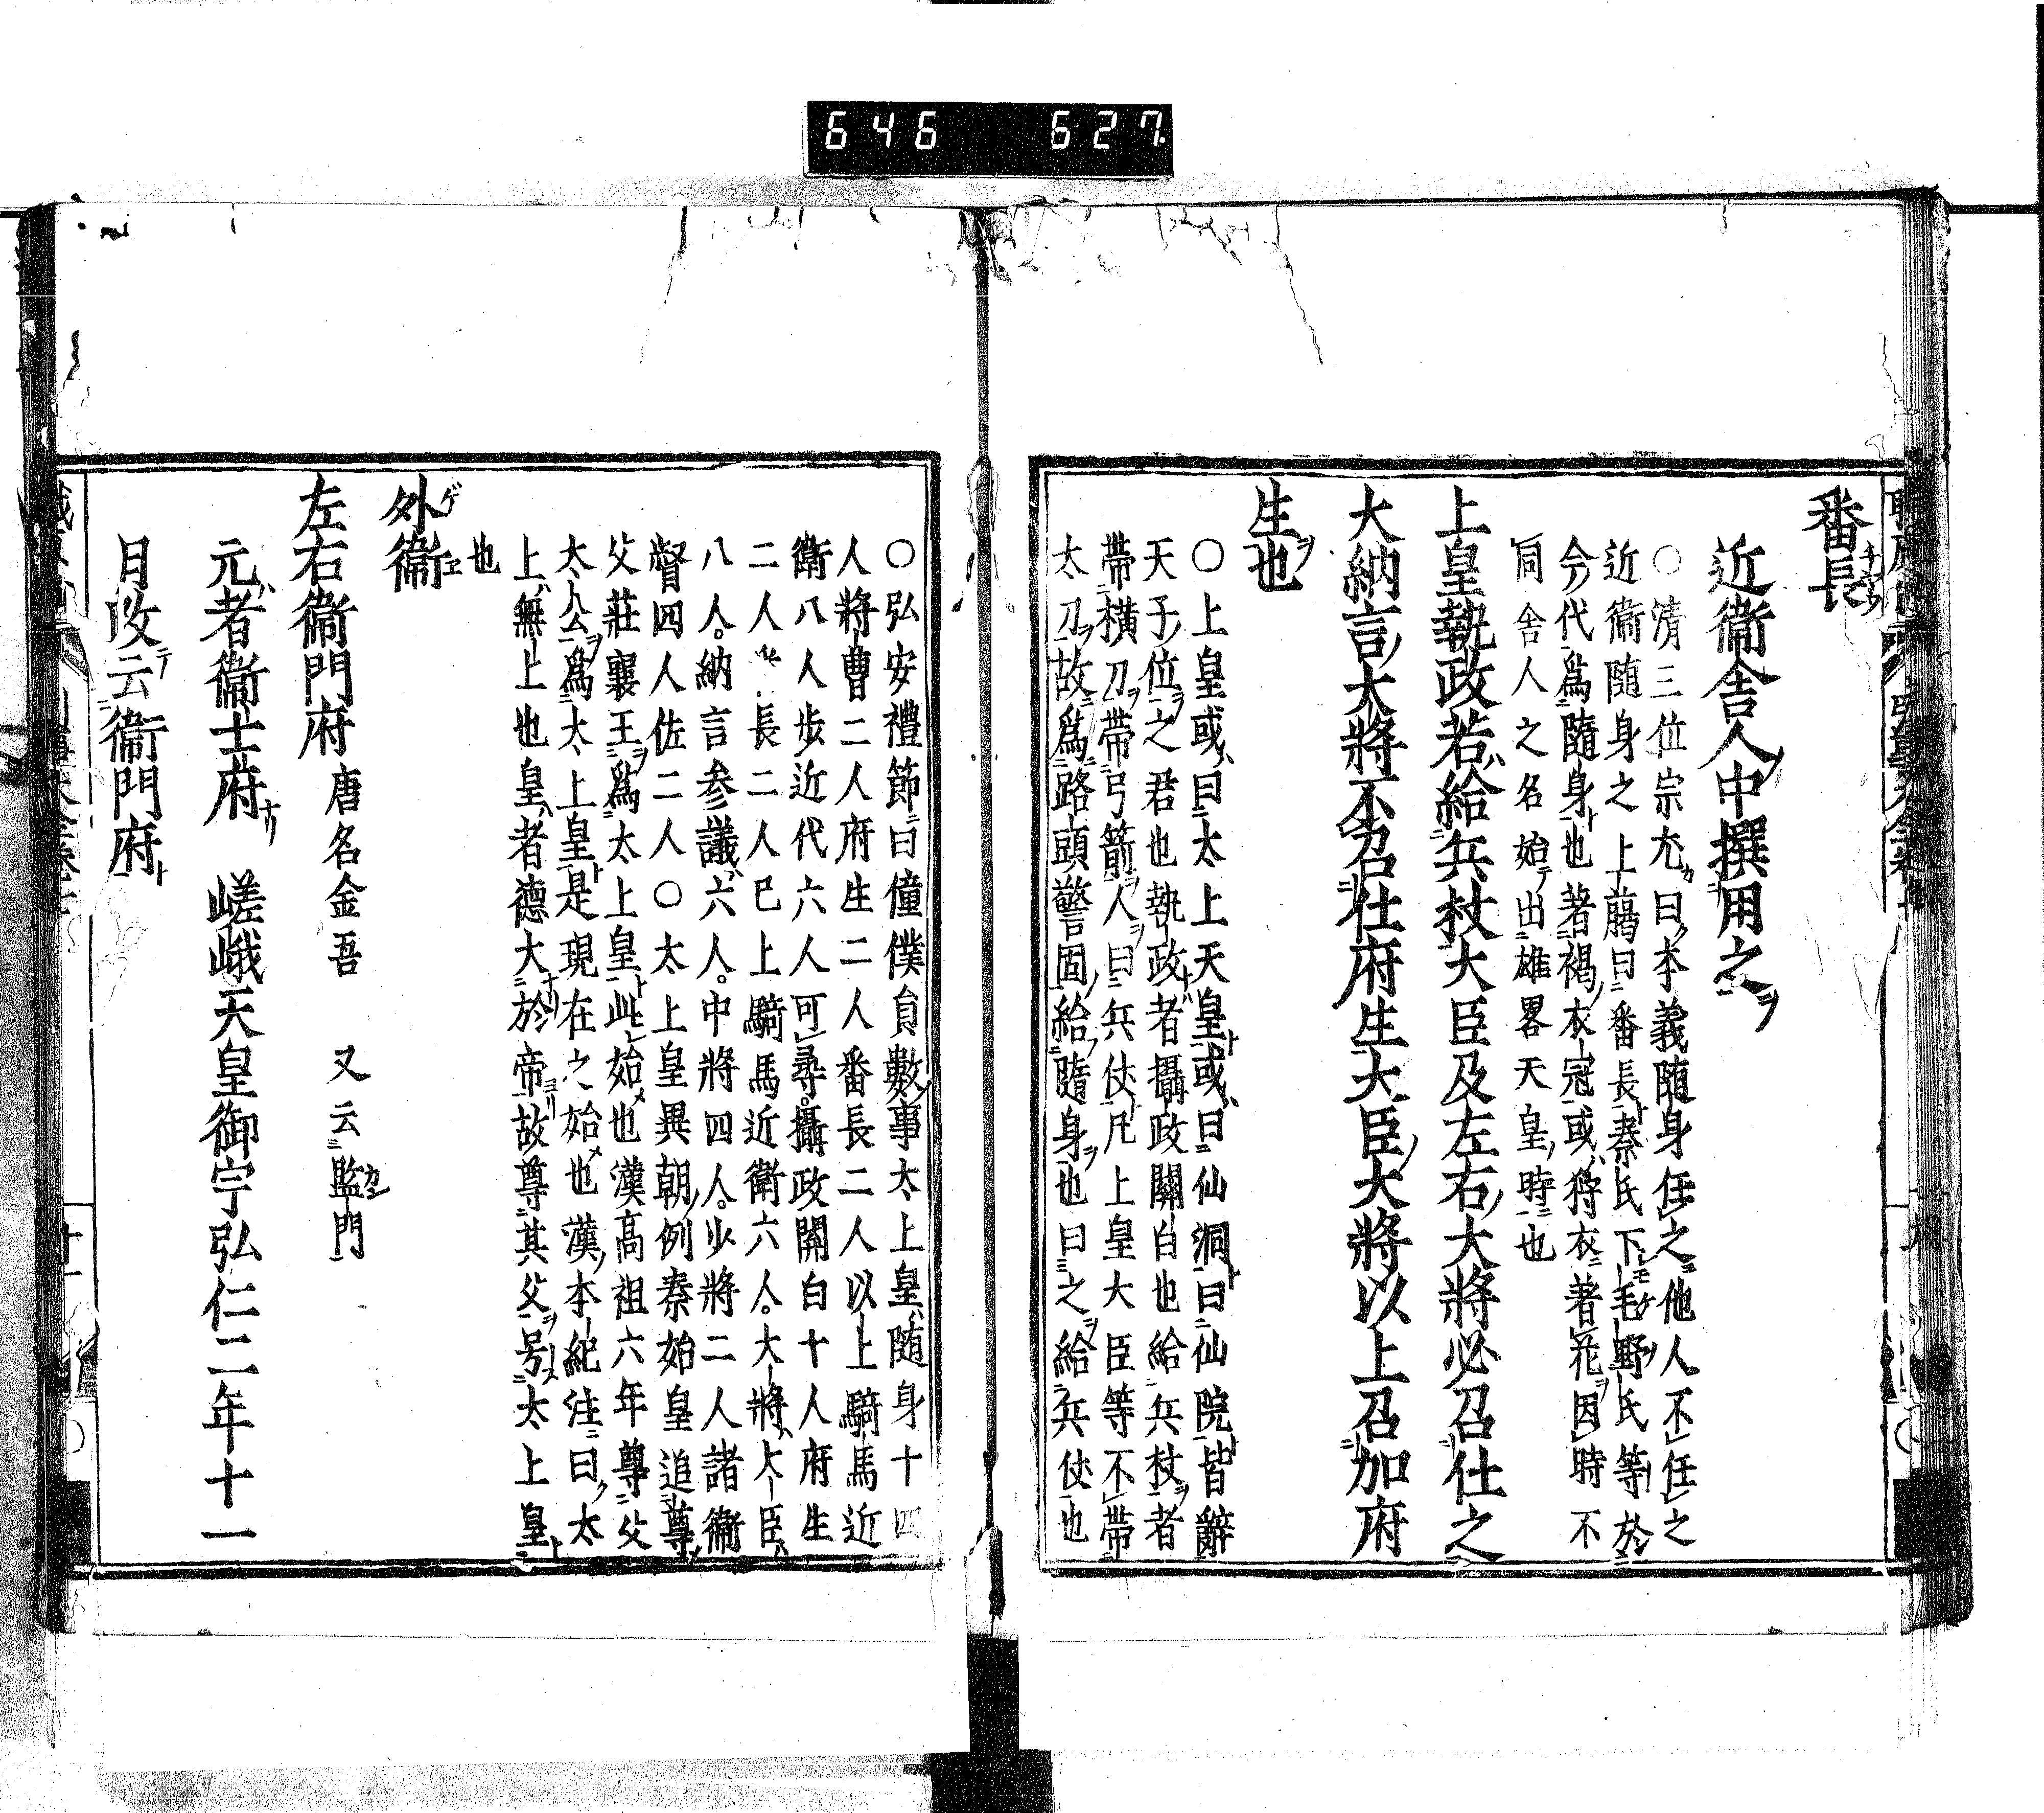 646 627
番長
近衞舎人中撰用之
○清三位宗尤曰本義随身任之他人不任之
近衞随身之上﨟曰番長秦氏下毛野氏等於
今代爲隨身也著褐衣冠或狩衣著花因時不
同舎人之名始出雄畧天皇時也
上皇執政若給兵杖大臣及左右大將必召仕之
大納言大將不召仕府生大臣大將以上召加府
生也
○上皇或曰太上天皇或曰仙洞曰仙院皆辭
天子位之君也執政者攝政關白也給兵杖者
帶橫刀帶弓箭人曰兵仗凡上皇大臣等不帶
太刀故爲路頭警固給隨身也曰之給兵仗也
○弘安禮節曰僮僕員數事太上皇随身十四
人將曹二人府生二人番長二人以上騎馬近
衛八人歩近代六人可尋攝政關白十人府生
二人番長二人巳上騎馬近衛六人大將大臣
八人納言参議六人中將四人少將二人諸衞
督四人佐二人○太上皇異朝例秦始皇追尊
父莊襄王爲太上皇此始也漢高祖六年尊父
太公爲太上皇是現在之始也漢本紀注曰太
上無上也皇者德大於帝故尊其父号太上皇
也
外衞
左右衞門府 唐名金吾 又云監門
元者衞士府 嵯峨天皇御宇弘仁二年十一
月改云衞門府